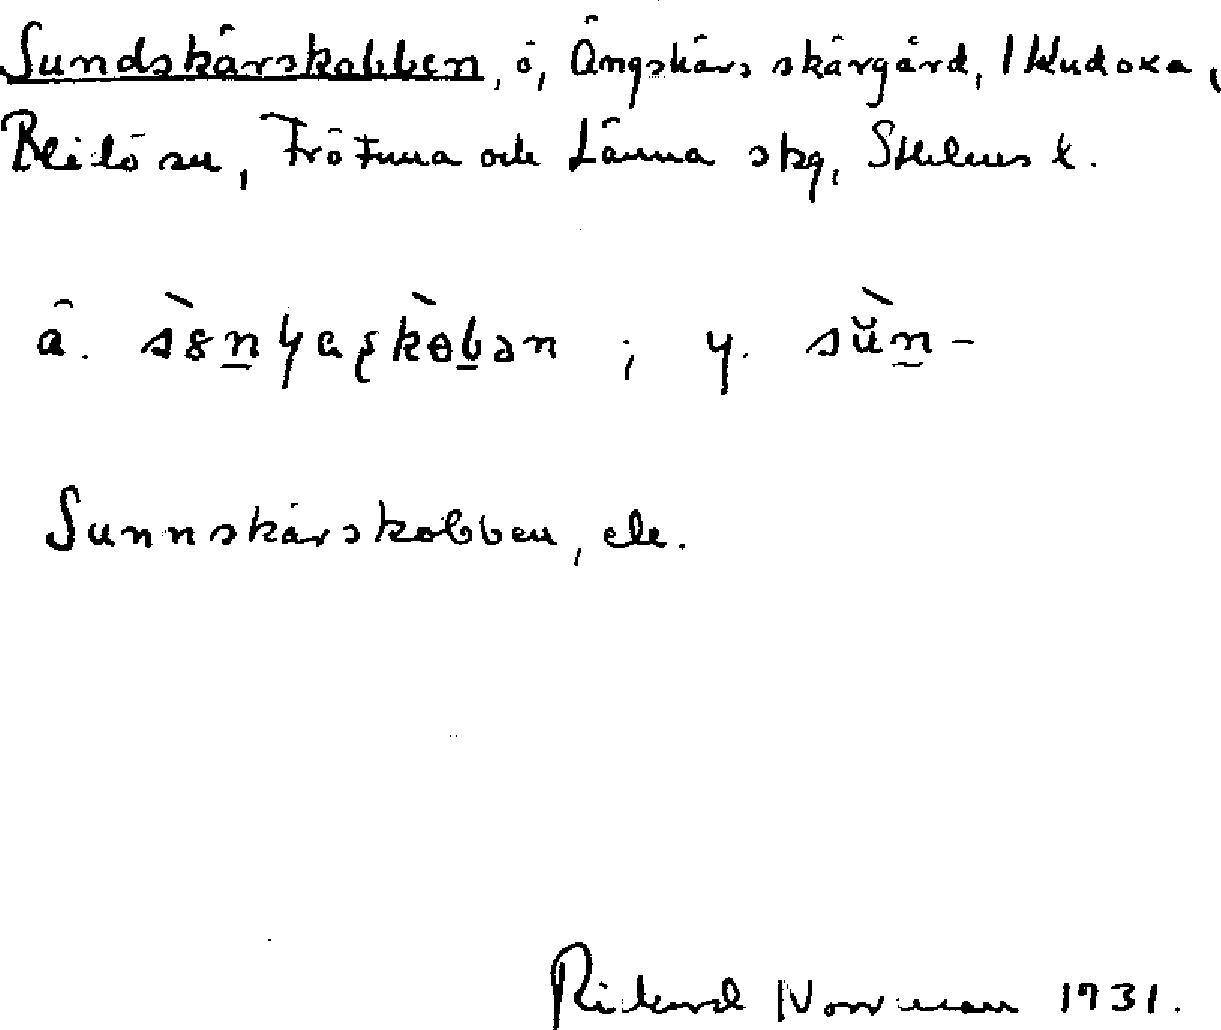 Sundskärskobben, ö, Ängskärs skärgård, 
Blidö sn, Frötuna och Länna skg, Sthlms l.
ä. ; y. sŭ̀n-
Sunnskärskobben, ele.
Rikard Norrman 1931.